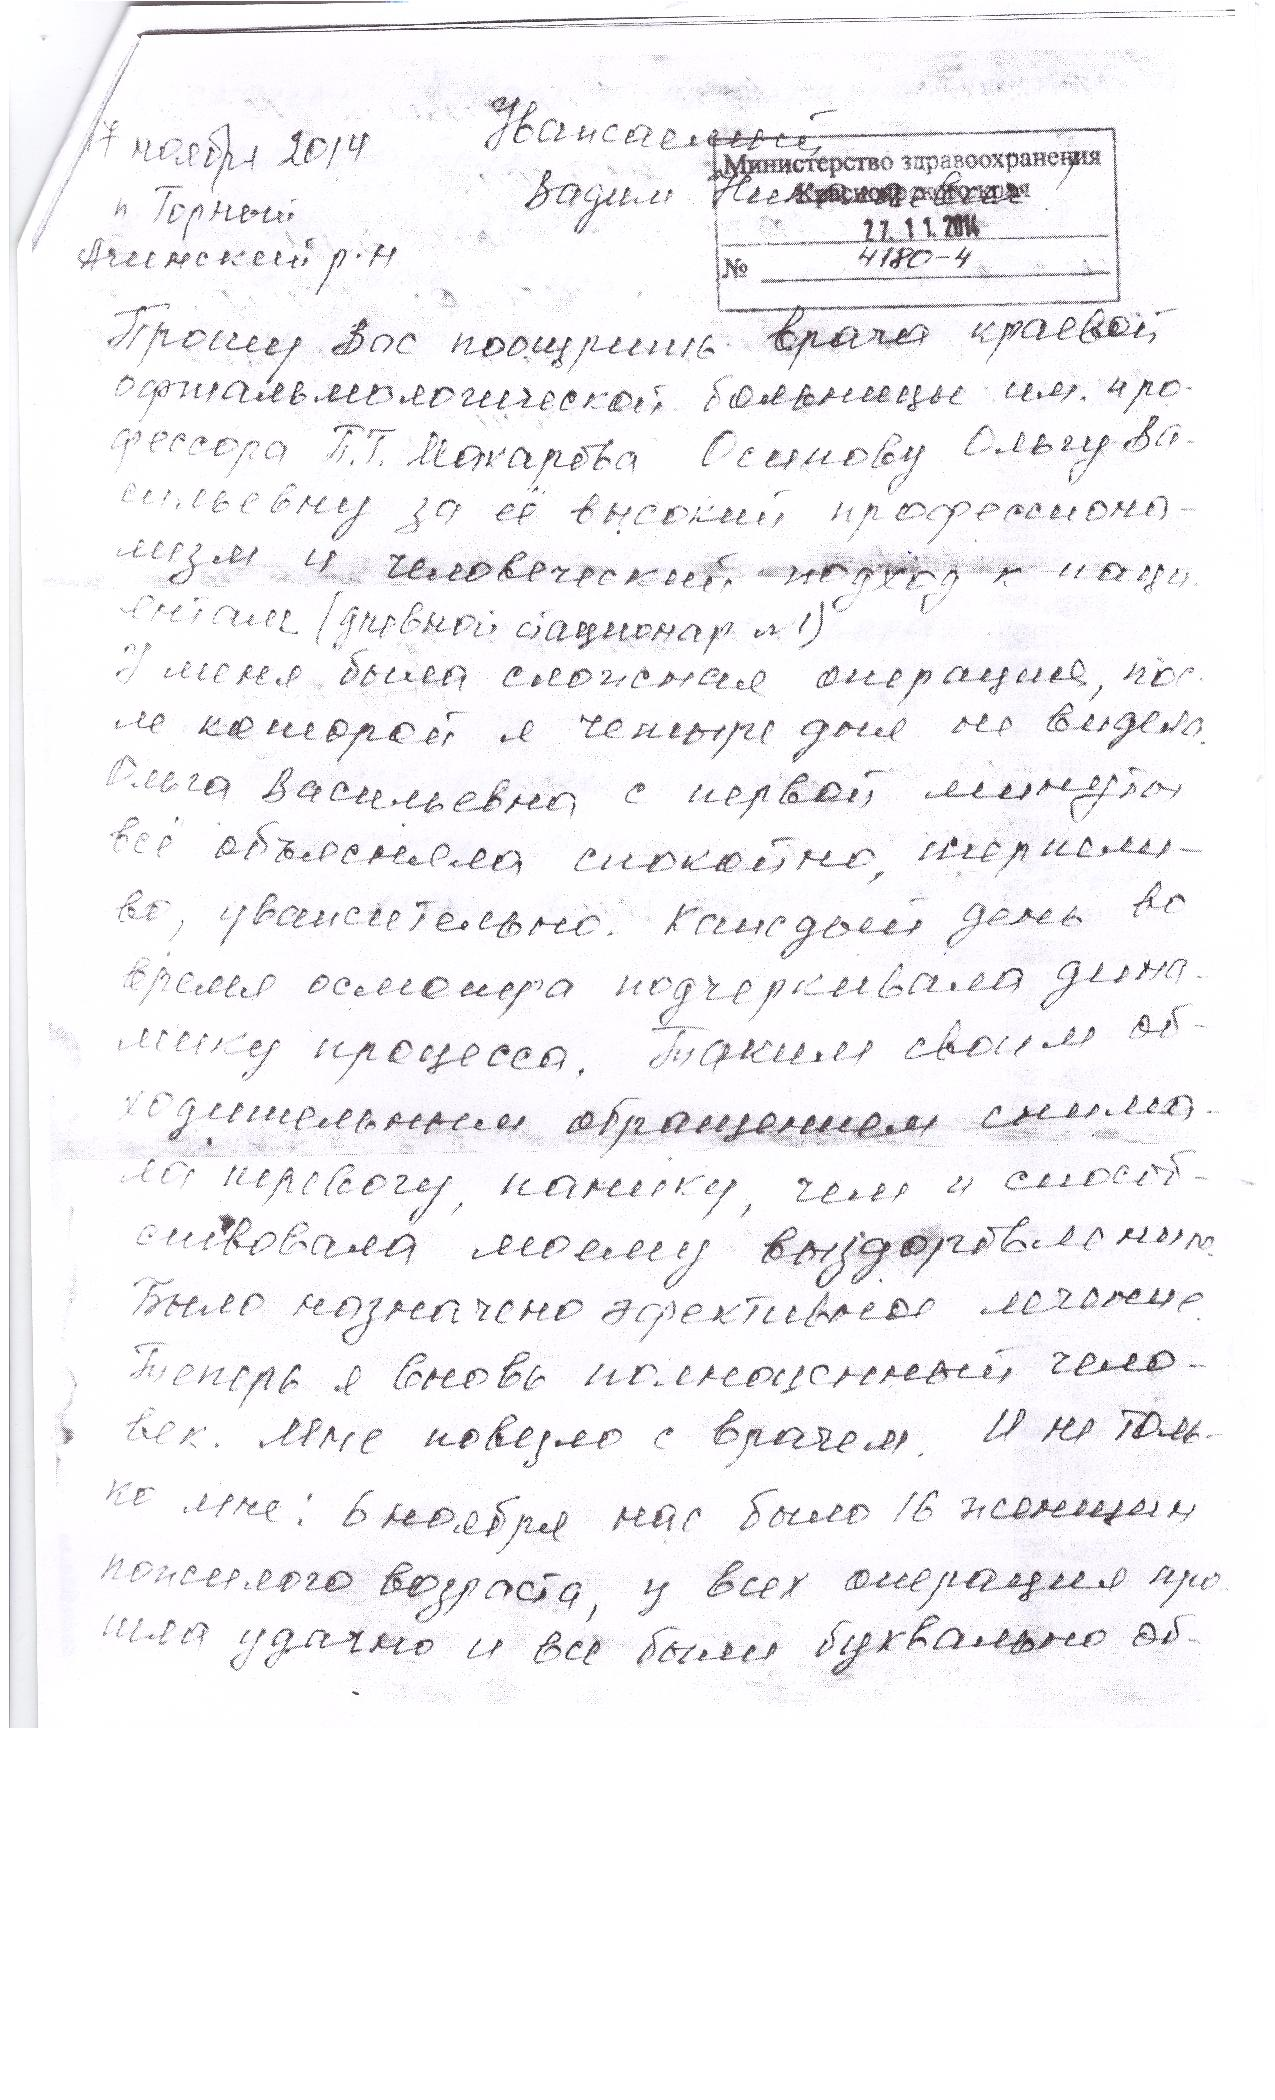 7 ноября 2014
п Горный
Ачинский р-н
Уважаемый
Вадим Николаевич
Министерство здравоохранения
Красноярского края
27.11.2014
№ 4180-4
Прошу Вас поощрить врача краевой
офтальмологической больницы им. про-
фессора П.Г. Макарова Осипову Ольгу Ва-
сильевну за её высокий профессиона-
лизм и человеческий подход к паци
ентам (дневной стационар №1)
У меня была сложная операция, пос-
ле которой я четыре дня не видела.
Ольга Васильевна с первой минуты
всё объясняла спокойно, терпели-
во, уважительно. Каждый день во
время осмотра подчеркивала дина-
мику процесса. Таким своим об-
ходительным обращением снима-
ла тревогу, панику, чем и способ-
ствовала моему выздоровлению.
Было назначено эфективное лечение.
Теперь я вновь полноценный чело-
век. Мне повезло с врачем. И не толь-
ко мне: 6 ноября нас было 16 женщин
пожилого возраста, у всех операция про
шла удачно и все были буквально об-